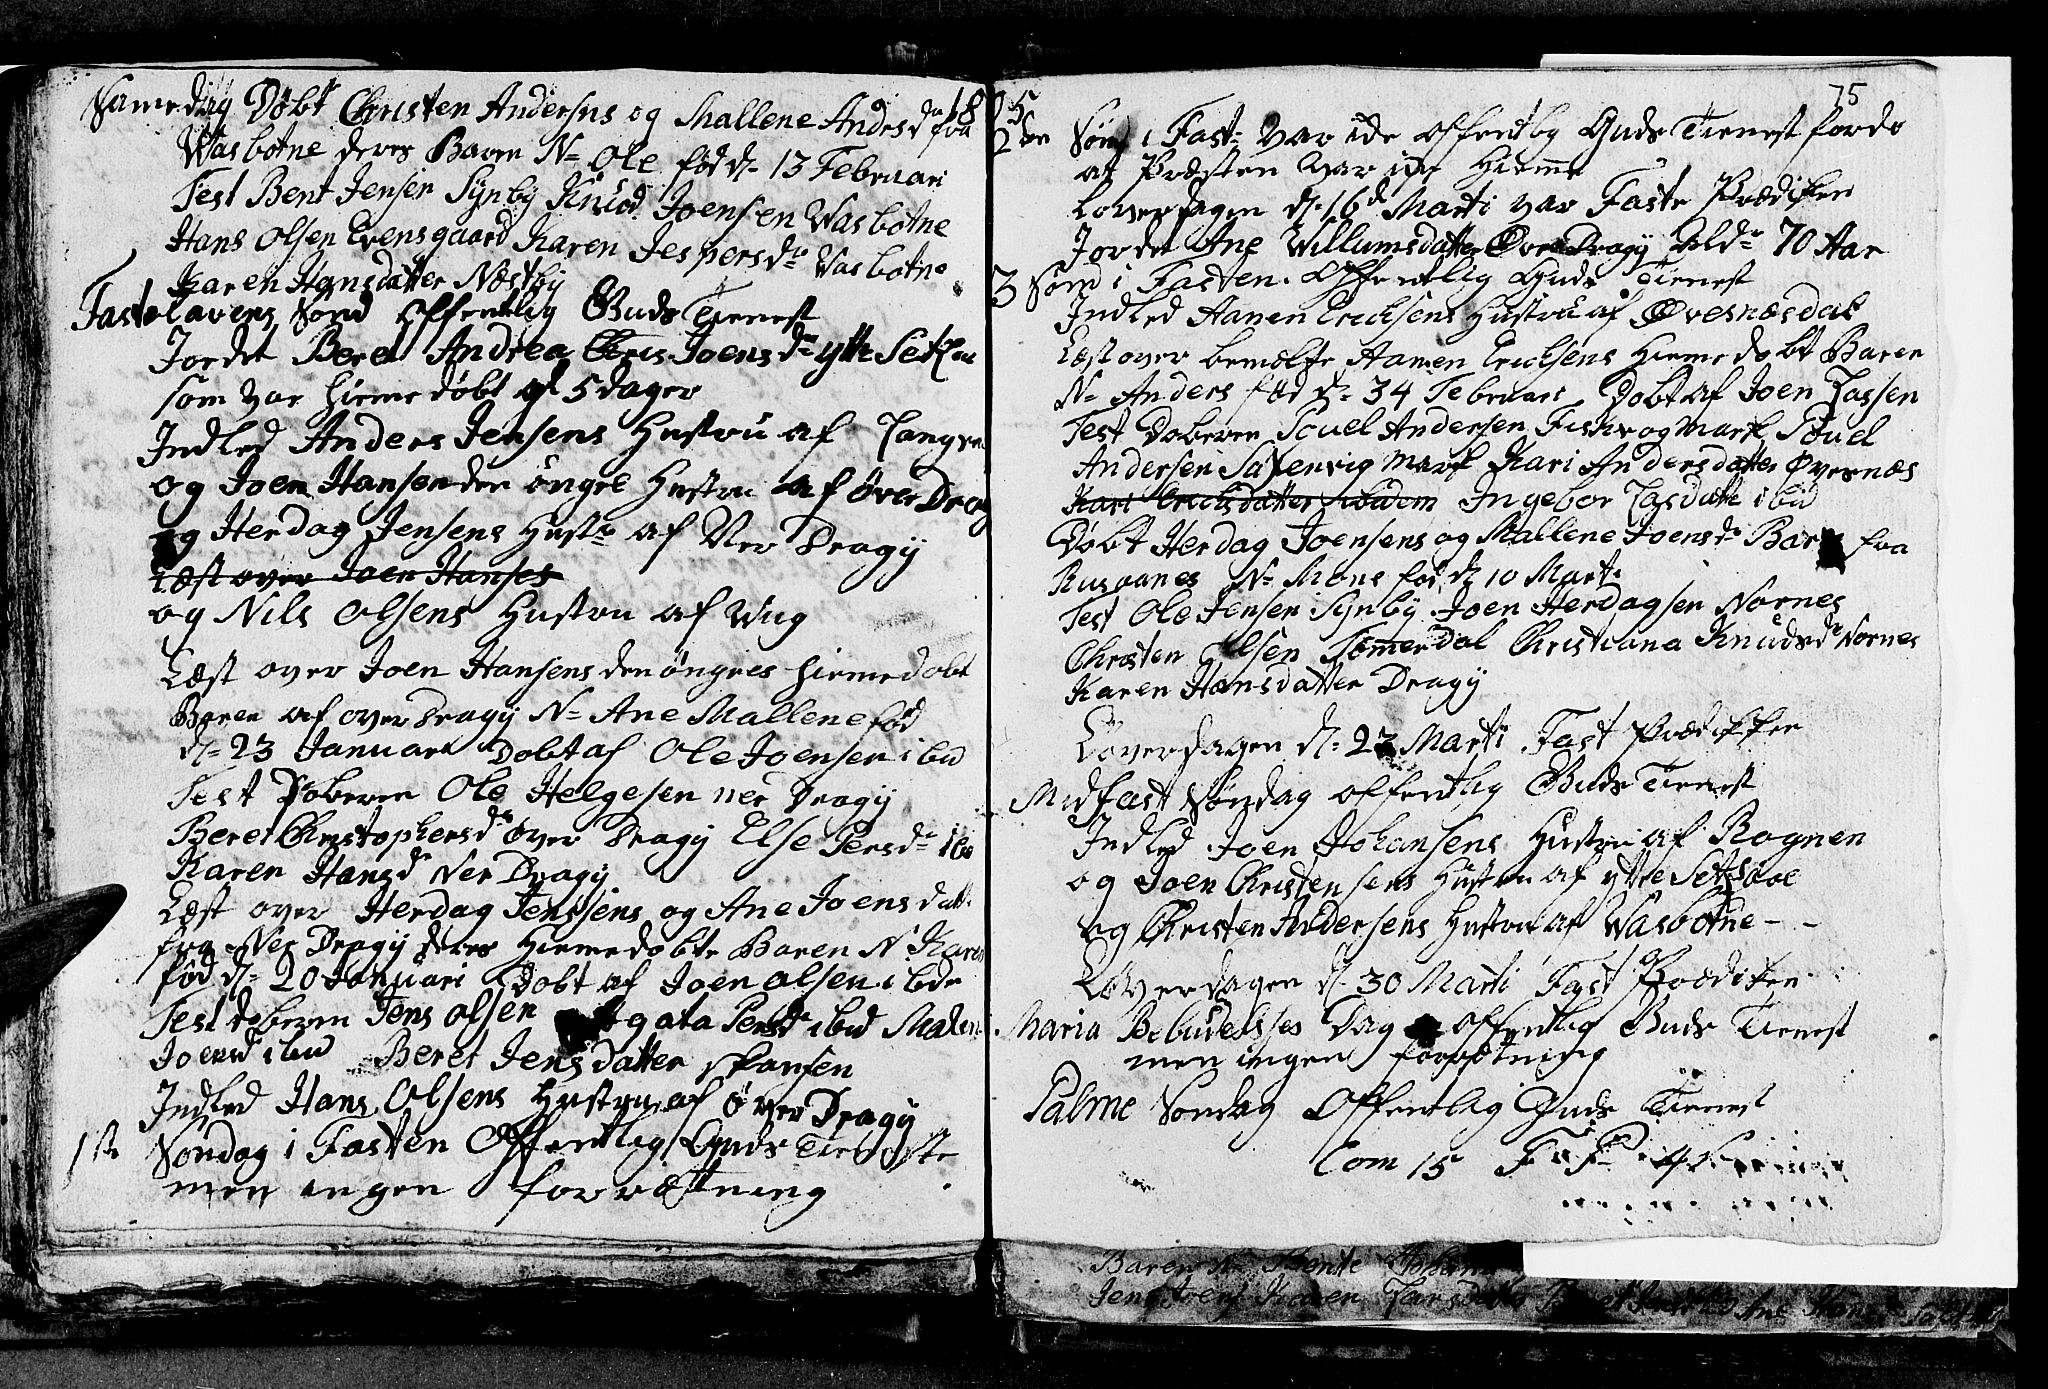 Same dag Døbt Christen Andersns og Mallene Andesdr fra
Wasbotne deres Baren N= Ole fød d. 13 Februari
Test Bent Jensen Synby Knud Joensen Wasbotne
Hans Olsen Evensgaard Karen Jespersdr Wasbotne
Karen Hansdatter Næstby
Fastelavens Sønd Offentlig Guds Tienest
Jordet Beret Andrea Joensdr ytte Set
som var hieme døbt 5 dager
Indled Anders Jensens Hustru af Langv
og Joen Hansen den öngre Hustru af över Drag
og Herdag Jensens Hustr af Ner Dragy
Læst over Joen Hanses
og Nils Olsens Hustru af Wug
Læst over Joen Hansens den öngres hieme döbt
Baren af over Dragy N= Ane Mallene fød
d. 23 Januari Döbt af Ole Joensen ibid
Test Döberen Ole Helgesen ner Dragy
Beret Christophersdr över Dragy Else Persdr ibi
Karen Hansd Ner Dragy
Læst over Herdag Jenssens og Ane Joens datt
fra Ner Dragy deres Hieme döbte Baren N. Karen
fød d. 20 Januari Döbt af Joen olsen ibde
Test døberen Jens olsen Agata Persdr ibid Malen
Joensd ibid Beret Jensdatter skansen
Indled Hans Olsens Hustru af över Dragy
1ste Søndag i Fasten Offentlig Guds Tieneste
men ingen forrættning
75
2den Sønd i Fast= var ide offentlig Guds Tienest fordi
at Præsten var ike Hieme
Løverdagen d. 16d Marti var Faste Prædiken
Jordet Ane Willumsdatter Øver Dragy Gld= 70 Aar
3 Sønd i Fasten Offentlig Guds Tienest
Indled Hanen Erichsens Hustru af Øvesnæsdal
Læst over bemælte Hamen Erichsens Hieme døbt Baren
N= Anders fød d. 34 Februari Döbt af Joen Lassen
Test Doberen Povel Andersen Fiskvogmark Povel
Andersen Saxenvig mark Kari Andersdatter Øvernæs
Kari Erichsdatter ibidem Ingebor Lasdatte ibid
Døbt Herdag Joensens og Mallene Joensdr Baren fra
Rusaanes N= Mons fød d. 10 Marti
Test Ole Jensen Synby Joen Herdagsen Nornes
Christen Olsen Tømerdal Christiana Knudsdr Nornes
Karen Hansdatter Dragy
Løverdagen d. 23 Marti Fast Prædikken
Midfast Søndag offentlig Guds Tienest
Indled Joen Johansens Hustru af Rognen
og Joen Christensens Hustru af yttre Setsaae
og Christen Andersens Hustru af Wasbotne
Løverdagen d. 30 Marti Fast Prædiken
Maria Bebudelsses Dag offentlig Guds Tienest
men ingen forrætning
Palme Søndag Offentlig Guds Tienest
Com 15
Baren N= Bente
Jens Joens Karen Larsdatter